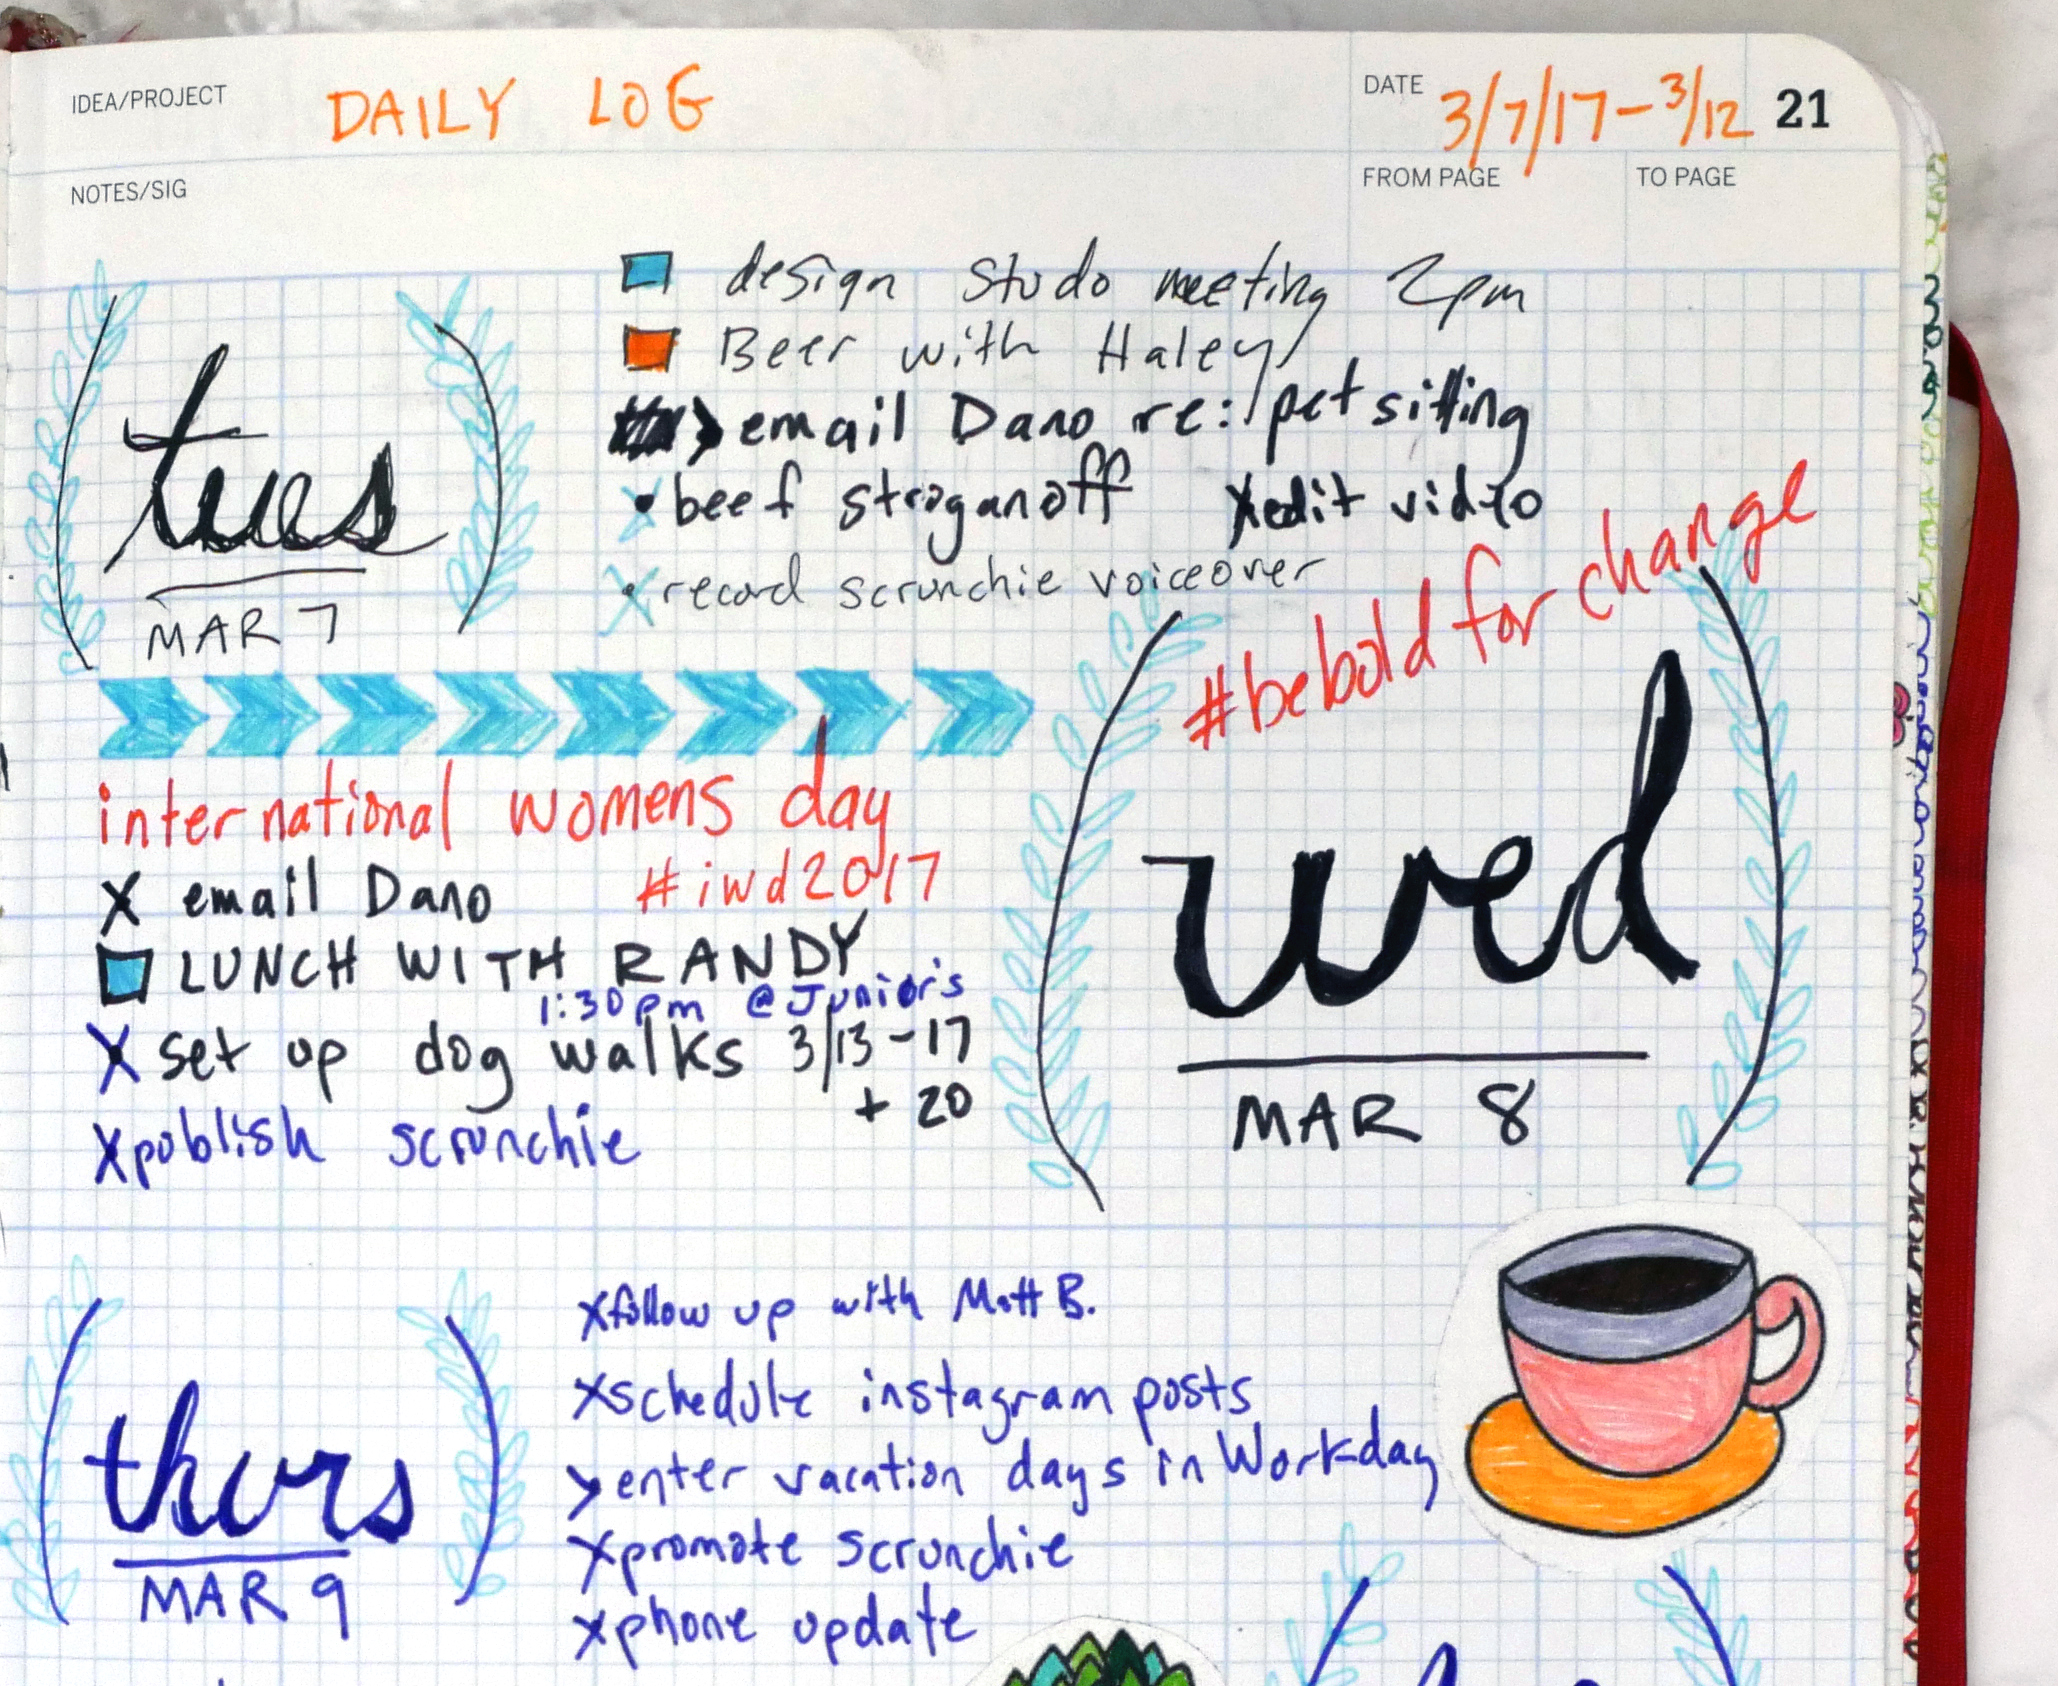 IDEA/PROJECT DAILY LOG
DATE 3/7/17-3/12 21
NOTES/SIG
FROM PAGE TO PAGE
tues
MAR 7
design Studo meeting 2pm
Beer with Haley
> email Dano re: pet sitting
• beef stroganoff X edit video
X record scrunchie voiceover
#beboldforchange
wed
MAR 8
international womens day
#iwd2017
X email Dano
LUNCH WITH RANDY
1:30pm @Junior's
X set up dog walks 3/13-17
+ 20
X publish scrunchie
thurs
MAR 9
X follow up with Matt B.
X schedule instagram posts
> enter vacation days in Workday
X promote scrunchie
X phone update